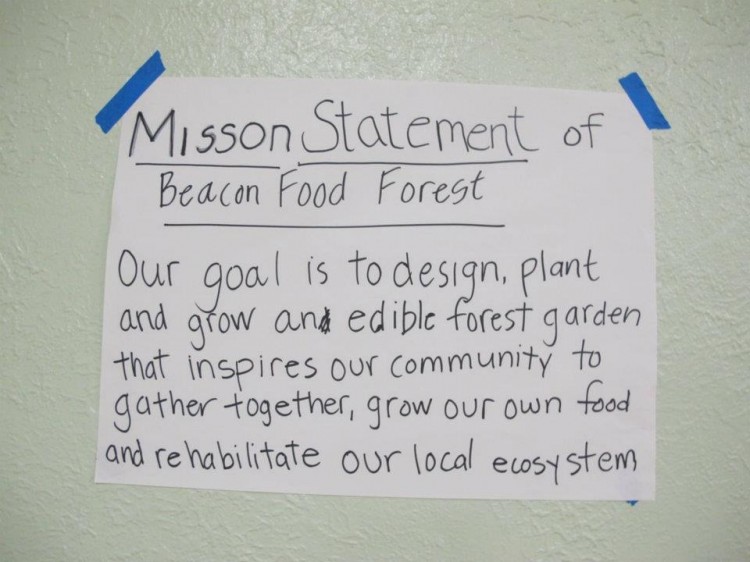 Misson Statement of
Beacon Food Forest
Our goal is to design, plant
and grow an edible forest garden
that inspires our community to
gather together, grow our own food
and rehabilitate our local ecosystem